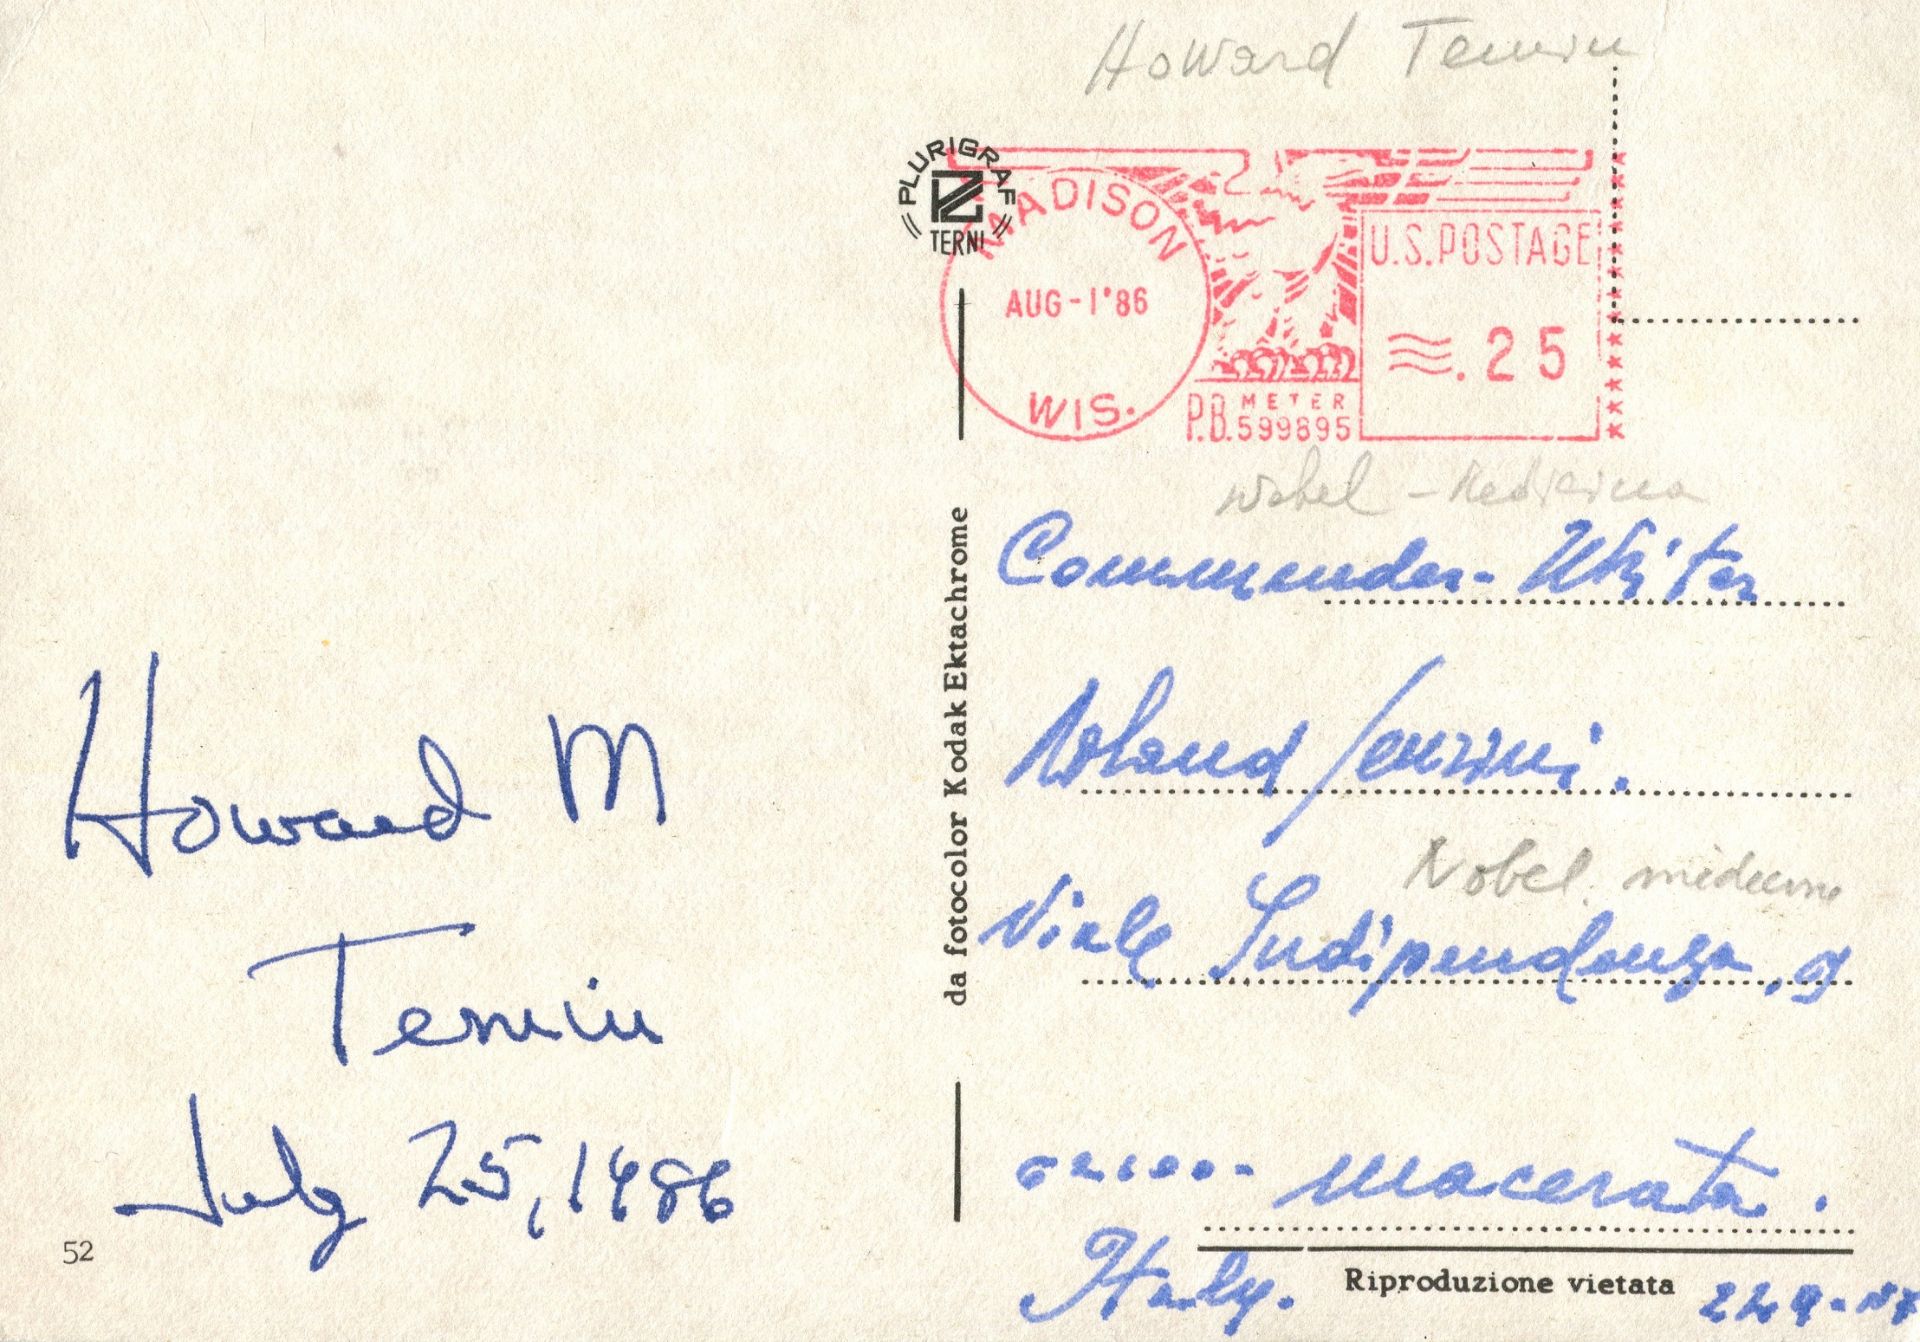 Howard Temin
PLURIGRAF
TERNI
MADISON
AUG-1'86
WIS.
P.B. METER
599895
U.S. POSTAGE
.25
Nobel - Medicina
Commander-Writer
Roland
Nobel
Viale Indipendenza, 9
62100- Macerata.
Italy.
Riproduzione vietata
da fotocolor Kodak Ektachrome
Howard M
Temin
July 25, 1986
52